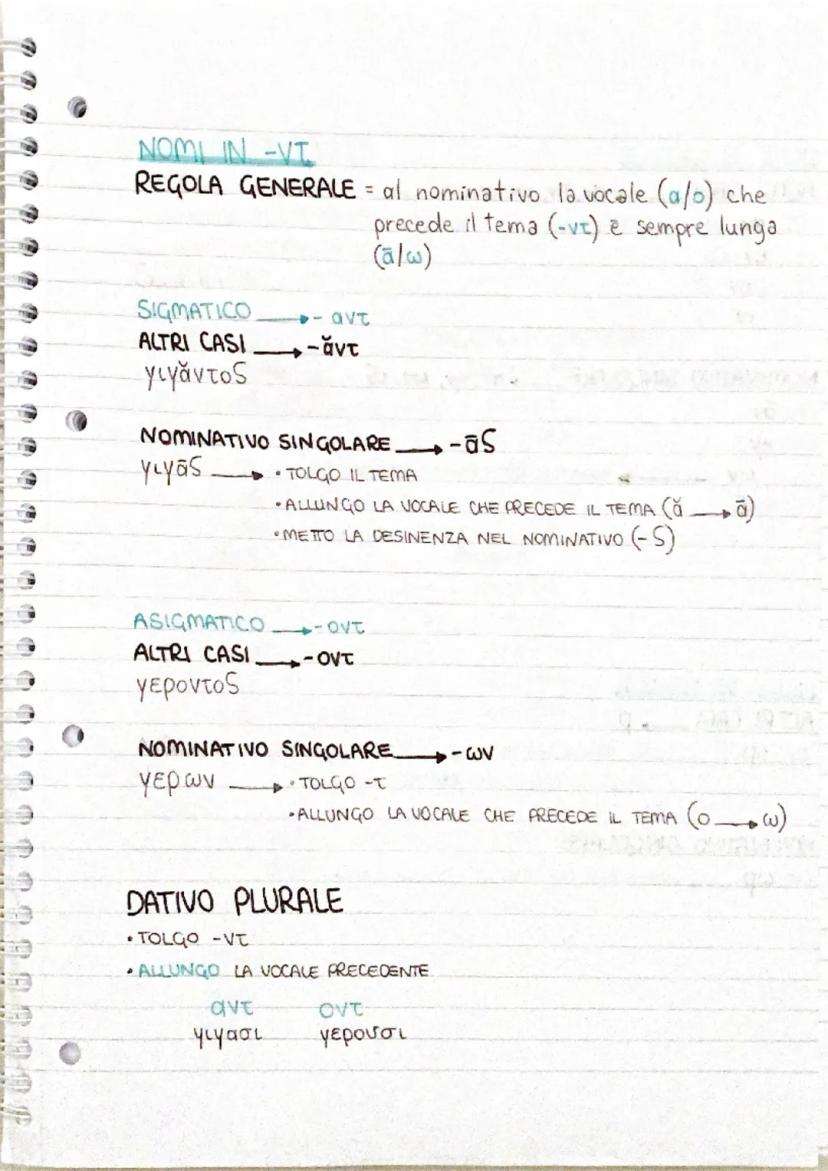 NOMI IN -ντ
REGOLA GENERALE = al nominativo la vocale (α/ο) che
precede il tema (-ντ) è sempre lunga
(ᾱ/ω)
SIGMATICO → - αντ
ALTRI CASI → -ᾰντ
γιγᾰντος
NOMINATIVO SINGOLARE → -ᾱς
γιγᾱς → • TOLGO IL TEMA
• ALLUNGO LA VOCALE CHE PRECEDE IL TEMA (ᾰ → ᾱ)
• METTO LA DESINENZA NEL NOMINATIVO (-ς)
ASIGMATICO → -οντ
ALTRI CASI → -οντ
γεροντος
NOMINATIVO SINGOLARE → -ων
γερων → • TOLGO -τ
• ALLUNGO LA VOCALE CHE PRECEDE IL TEMA (ο → ω)
DATIVO PLURALE
• TOLGO -ντ
• ALLUNGO LA VOCALE PRECEDENTE
αντ οντ
γιγασι γερουσι